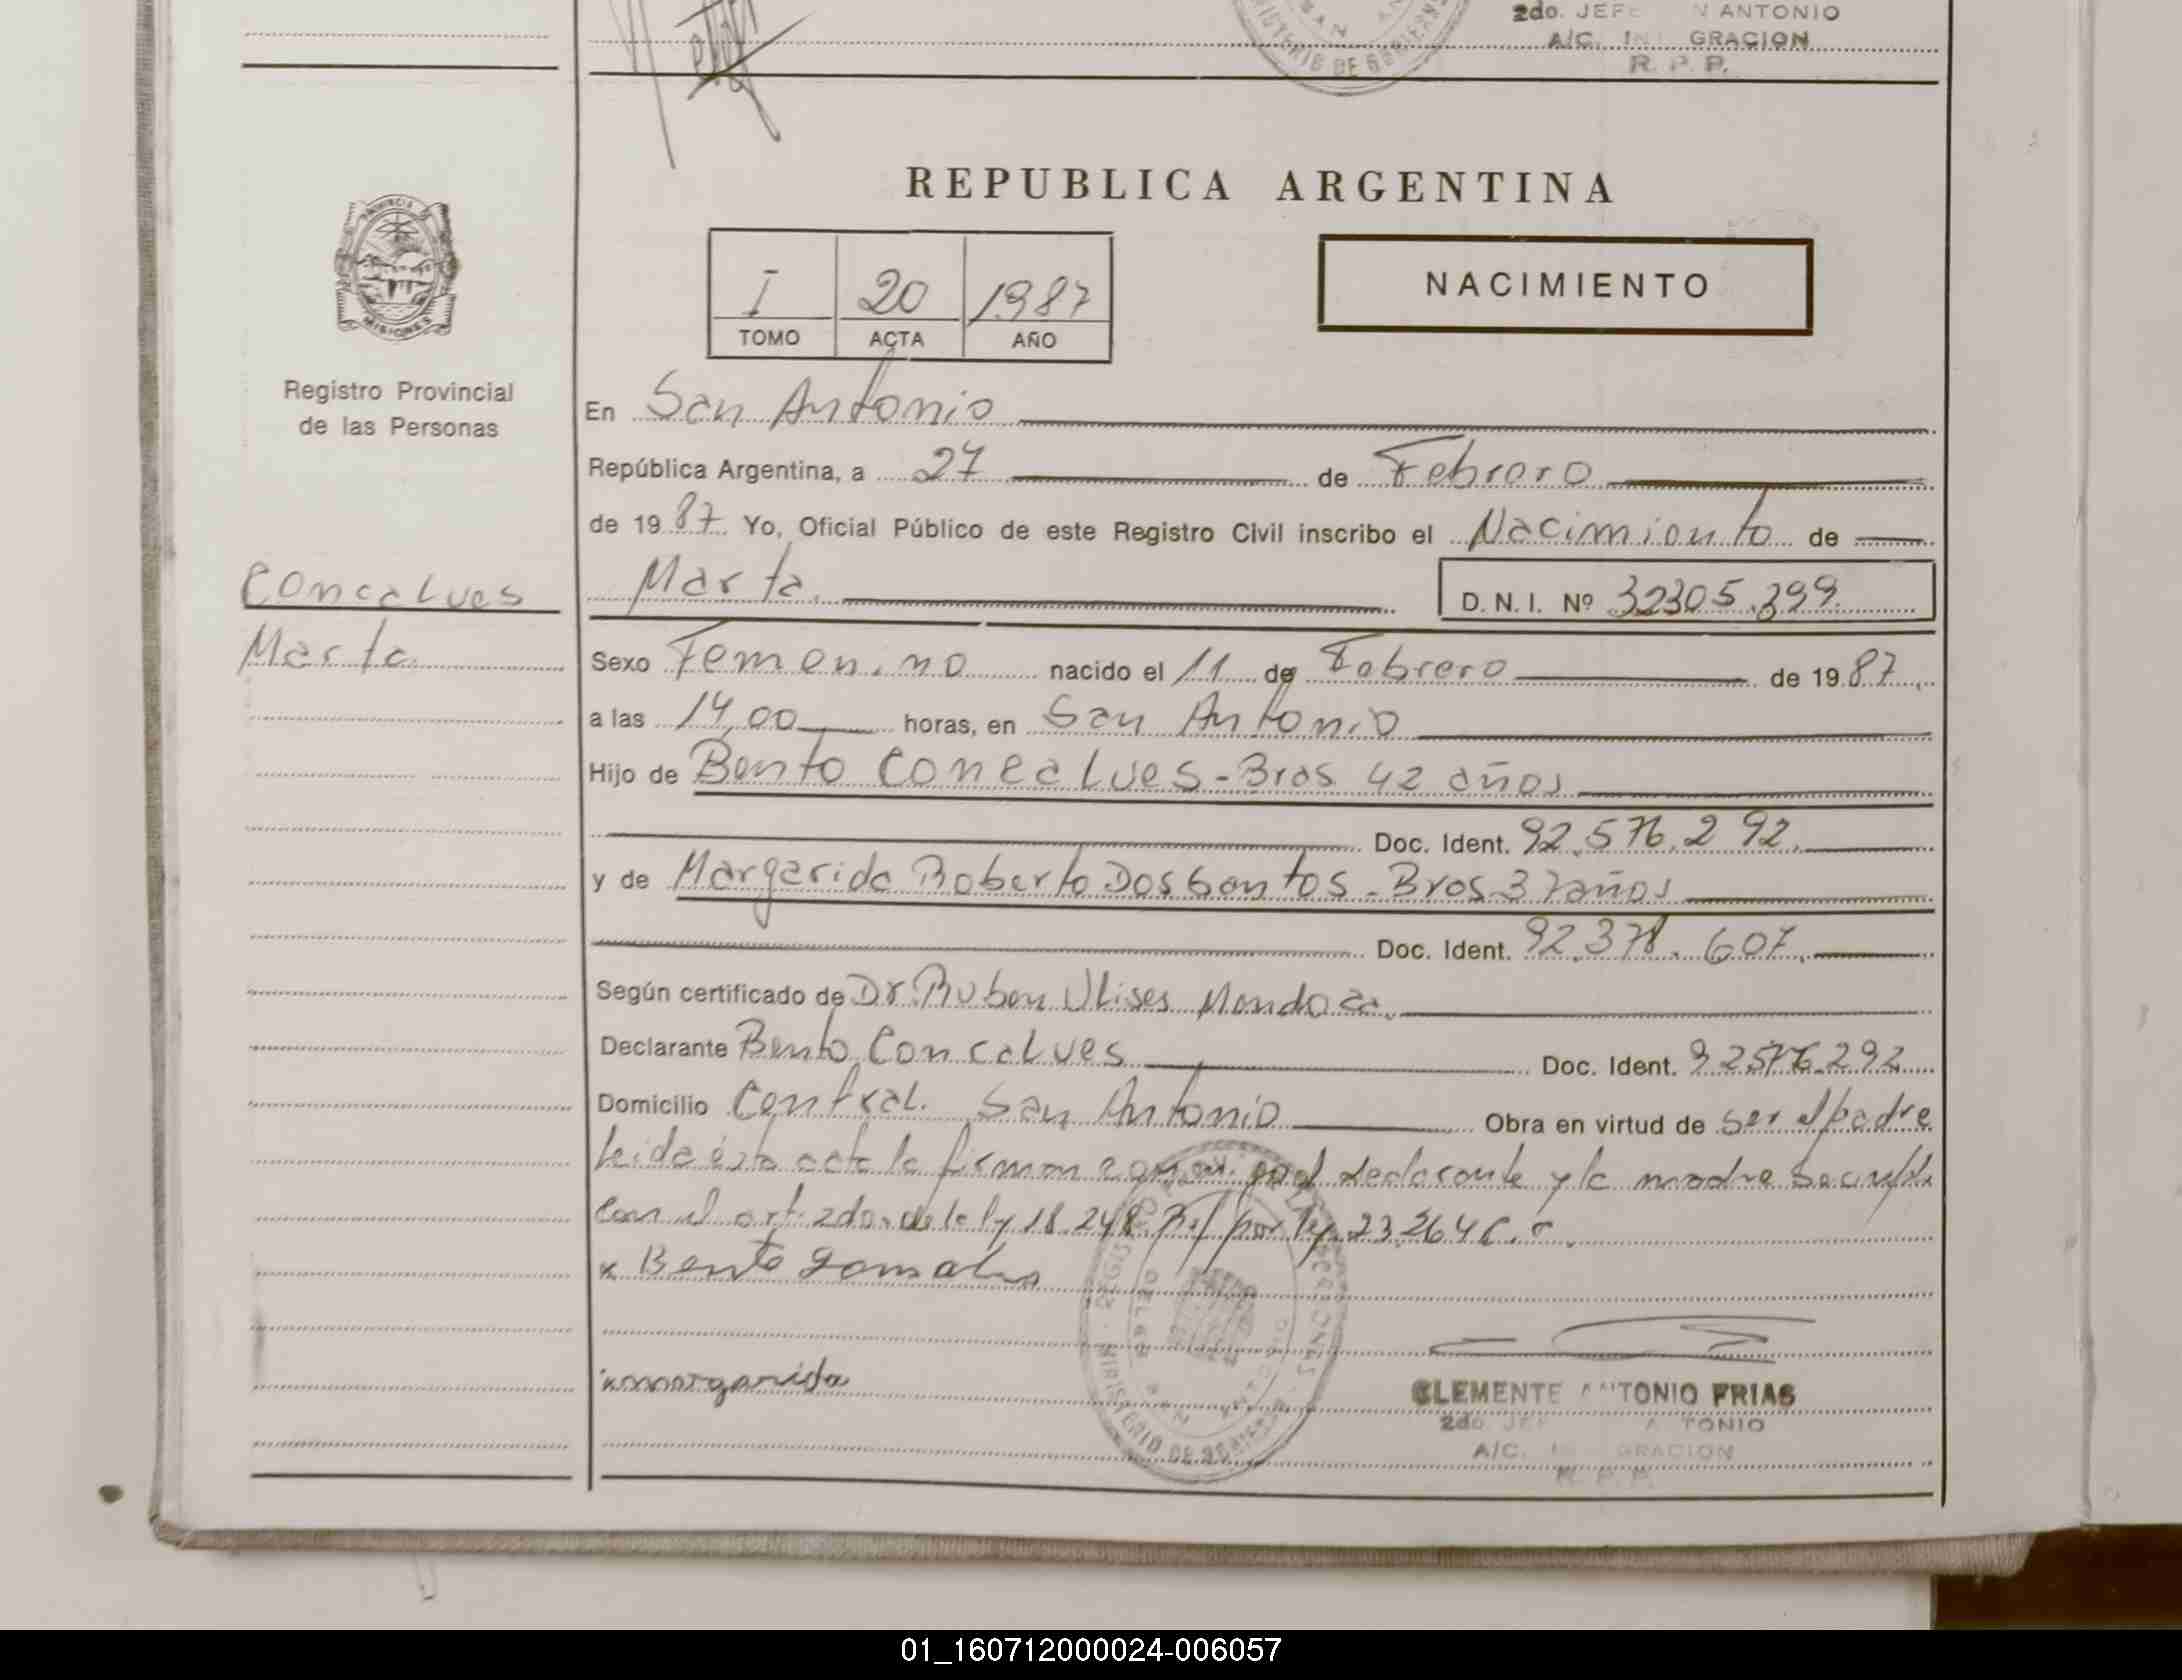 2do. JEFE N ANTONIO
A/C. IN GRACION
R. P. P.
MINISTERIO DE GOBIERNO
REPUBLICA ARGENTINA
PROVINCIA DE
MISIONES
I 20 1987
TOMO ACTA AÑO
NACIMIENTO
Registro Provincial
de las Personas
En San Antonio
República Argentina, a 27 de Febrero
de 1987 Yo, Oficial Público de este Registro Civil inscribo el Nacimiento de
Concalves
Marta
Marta D. N. I. Nº 32305.399
Sexo Femenino nacido el 11 de Febrero de 1987
a las 14,00 horas, en San Antonio
Hijo de Bento Concalves - Bras 42 años
Doc. Ident. 92.576.292.
y de Margarida Roberto Dos Santos - Bras 37 años
Doc. Ident. 92.378.607.
Según certificado de Dr. Ruben Ulises Mendoza.
Declarante Bento Concalves Doc. Ident. 92576.292
Domicilio Central. San Antonio Obra en virtud de ser el padre
Leida ésta acta la firman el declarante y la madre
Con el art. 2do. de la ley 18.248 por ley 23.264
x Bento Gonsalves
x margarida
CLEMENTE ANTONIO FRIAS
2do JEF A TONIO
A/C. I GRACION
R. P. P.
01_160712000024-006057